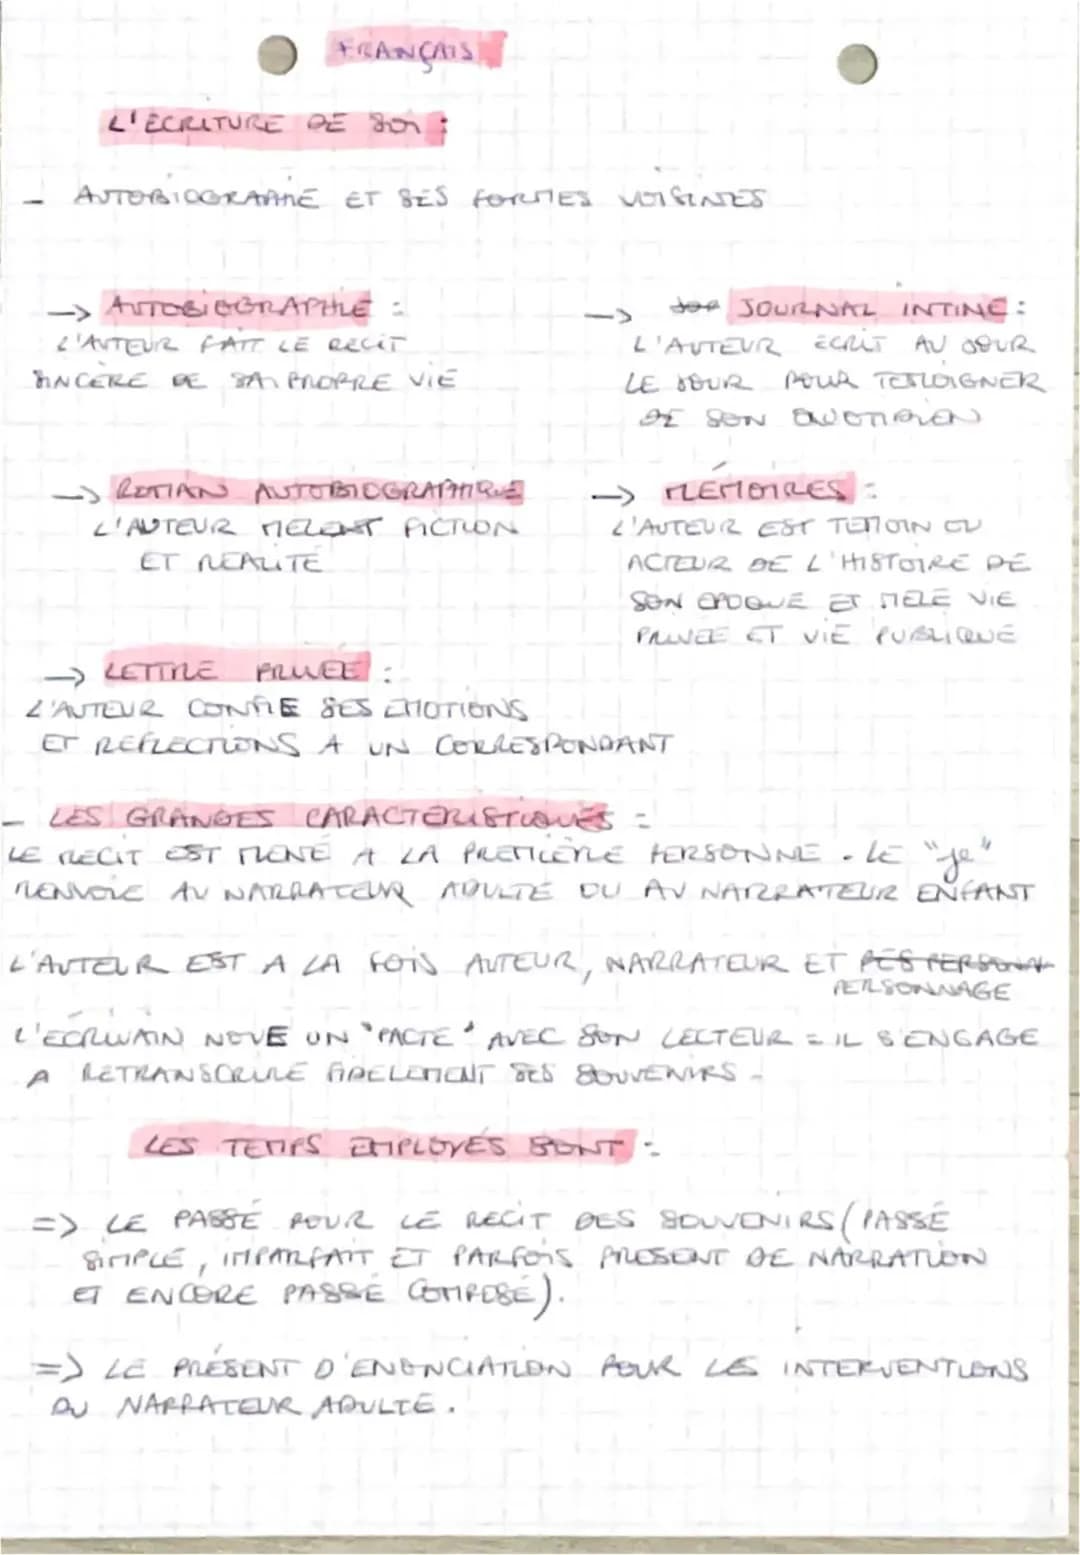 FRANÇAIS
L'ÉCRITURE DE SOI :
- AUTOBIOGRAPHIE ET SES FORMES VOISINES
-> AUTOBIOGRAPHIE :
L'AUTEUR FAIT LE RECIT
SINCÈRE DE SA PROPRE VIE
-> JOURNAL INTIME :
L'AUTEUR ECRIT AU JOUR
LE JOUR POUR TEMOIGNER
DE SON QUOTIDIEN
-> ROMAN AUTOBIOGRAPHIQUE
L'AUTEUR MELENT FICTION
ET REALITÉ
-> MÉMOIRES :
L'AUTEUR EST TEMOIN OU
ACTEUR DE L'HISTOIRE DE
SON EPOQUE ET MELE VIE
PRIVEE ET VIE PUBLIQUE
-> LETTRE PRIVEE :
L'AUTEUR CONFIE SES EMOTIONS
ET REFLECTIONS A UN CORRESPONDANT
- LES GRANDES CARACTERISTIQUES :
LE RECIT EST MENÉ A LA PREMIERE PERSONNE. LE "je"
RENVOIE AU NARRATEUR ADULTE OU AU NARRATEUR ENFANT
L'AUTEUR EST A LA FOIS AUTEUR, NARRATEUR ET DES PERSONN
PERSONNAGE
L'ÉCRIVAIN NOUE UN "PACTE" AVEC SON LECTEUR = IL S'ENGAGE
A RETRANSCRIRE FIDELEMENT SES SOUVENIRS -
LES TEMPS EMPLOYÉS SONT :
=> LE PASSÉ POUR LE RECIT DES SOUVENIRS (PASSÉ
SIMPLE, IMPARFAIT ET PARFOIS PRESENT DE NARRATION
ET ENCORE PASSÉ COMPOSÉ).
=> LE PRÉSENT D'ENONCIATION POUR LES INTERVENTIONS
DU NARRATEUR ADULTE.